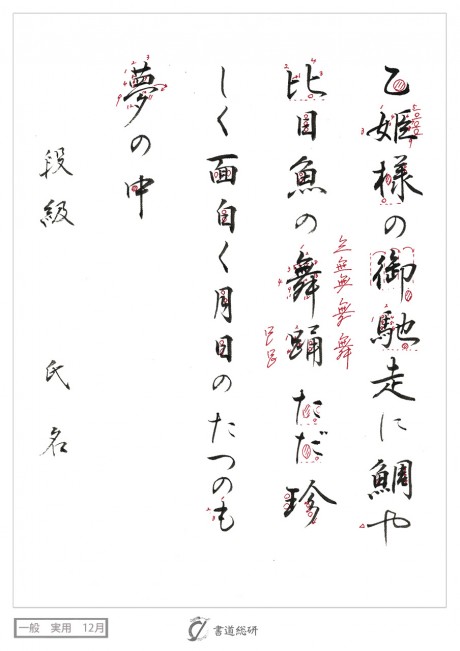 乙姫様の御馳走に鯛や
比目魚の舞踊ただ珍
しく面白く月日のたつのも
夢の中
段級 氏名
一般 実用 12月
書道総研